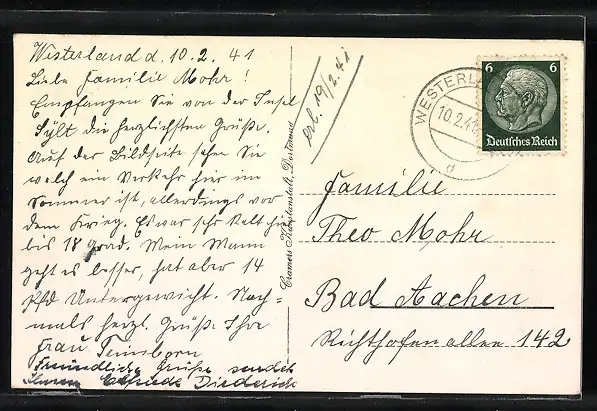 Westerland d. 10.2.41
Liebe Familie Mohr!
Empfangen Sie von der Insel
Sylt die herzlichsten Grüße.
Auf der Bildseite sehen Sie
welch ein Verkehr hier im
Sommer ist, allerdings vor
dem Krieg. Es war sehr kalt hier
bis 18 Grad. Mein Mann
geht es besser, hat aber 14
Pfd Untergewicht. Noch=
mals herzl. Grüße Ihre
Frau
Freundliche Grüße sendet
Elfriede Diederich
Cramers Kunstanstalt, Dortmund
erl. 19/2.41
WESTERLAND
10.2.41
d
6 6
Deutsches Reich
Familie
Theo Mohr
Bad Aachen
Richthofenallee 142